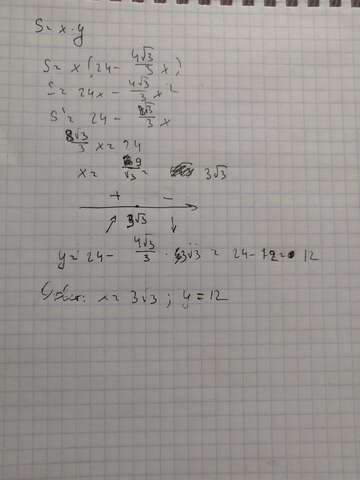 S = x · y
S = x (24 - 4√3/3 x)
S = 24x - 4√3/3 x²
S' = 24 - 8√3/3 x
8√3/3 x = 24
x = 9/√3 = 3√3
+ -
3√3
y = 24 - 4√3/3 · 3√3 = 24 - 12 = 12
x = 3√3 ; y = 12